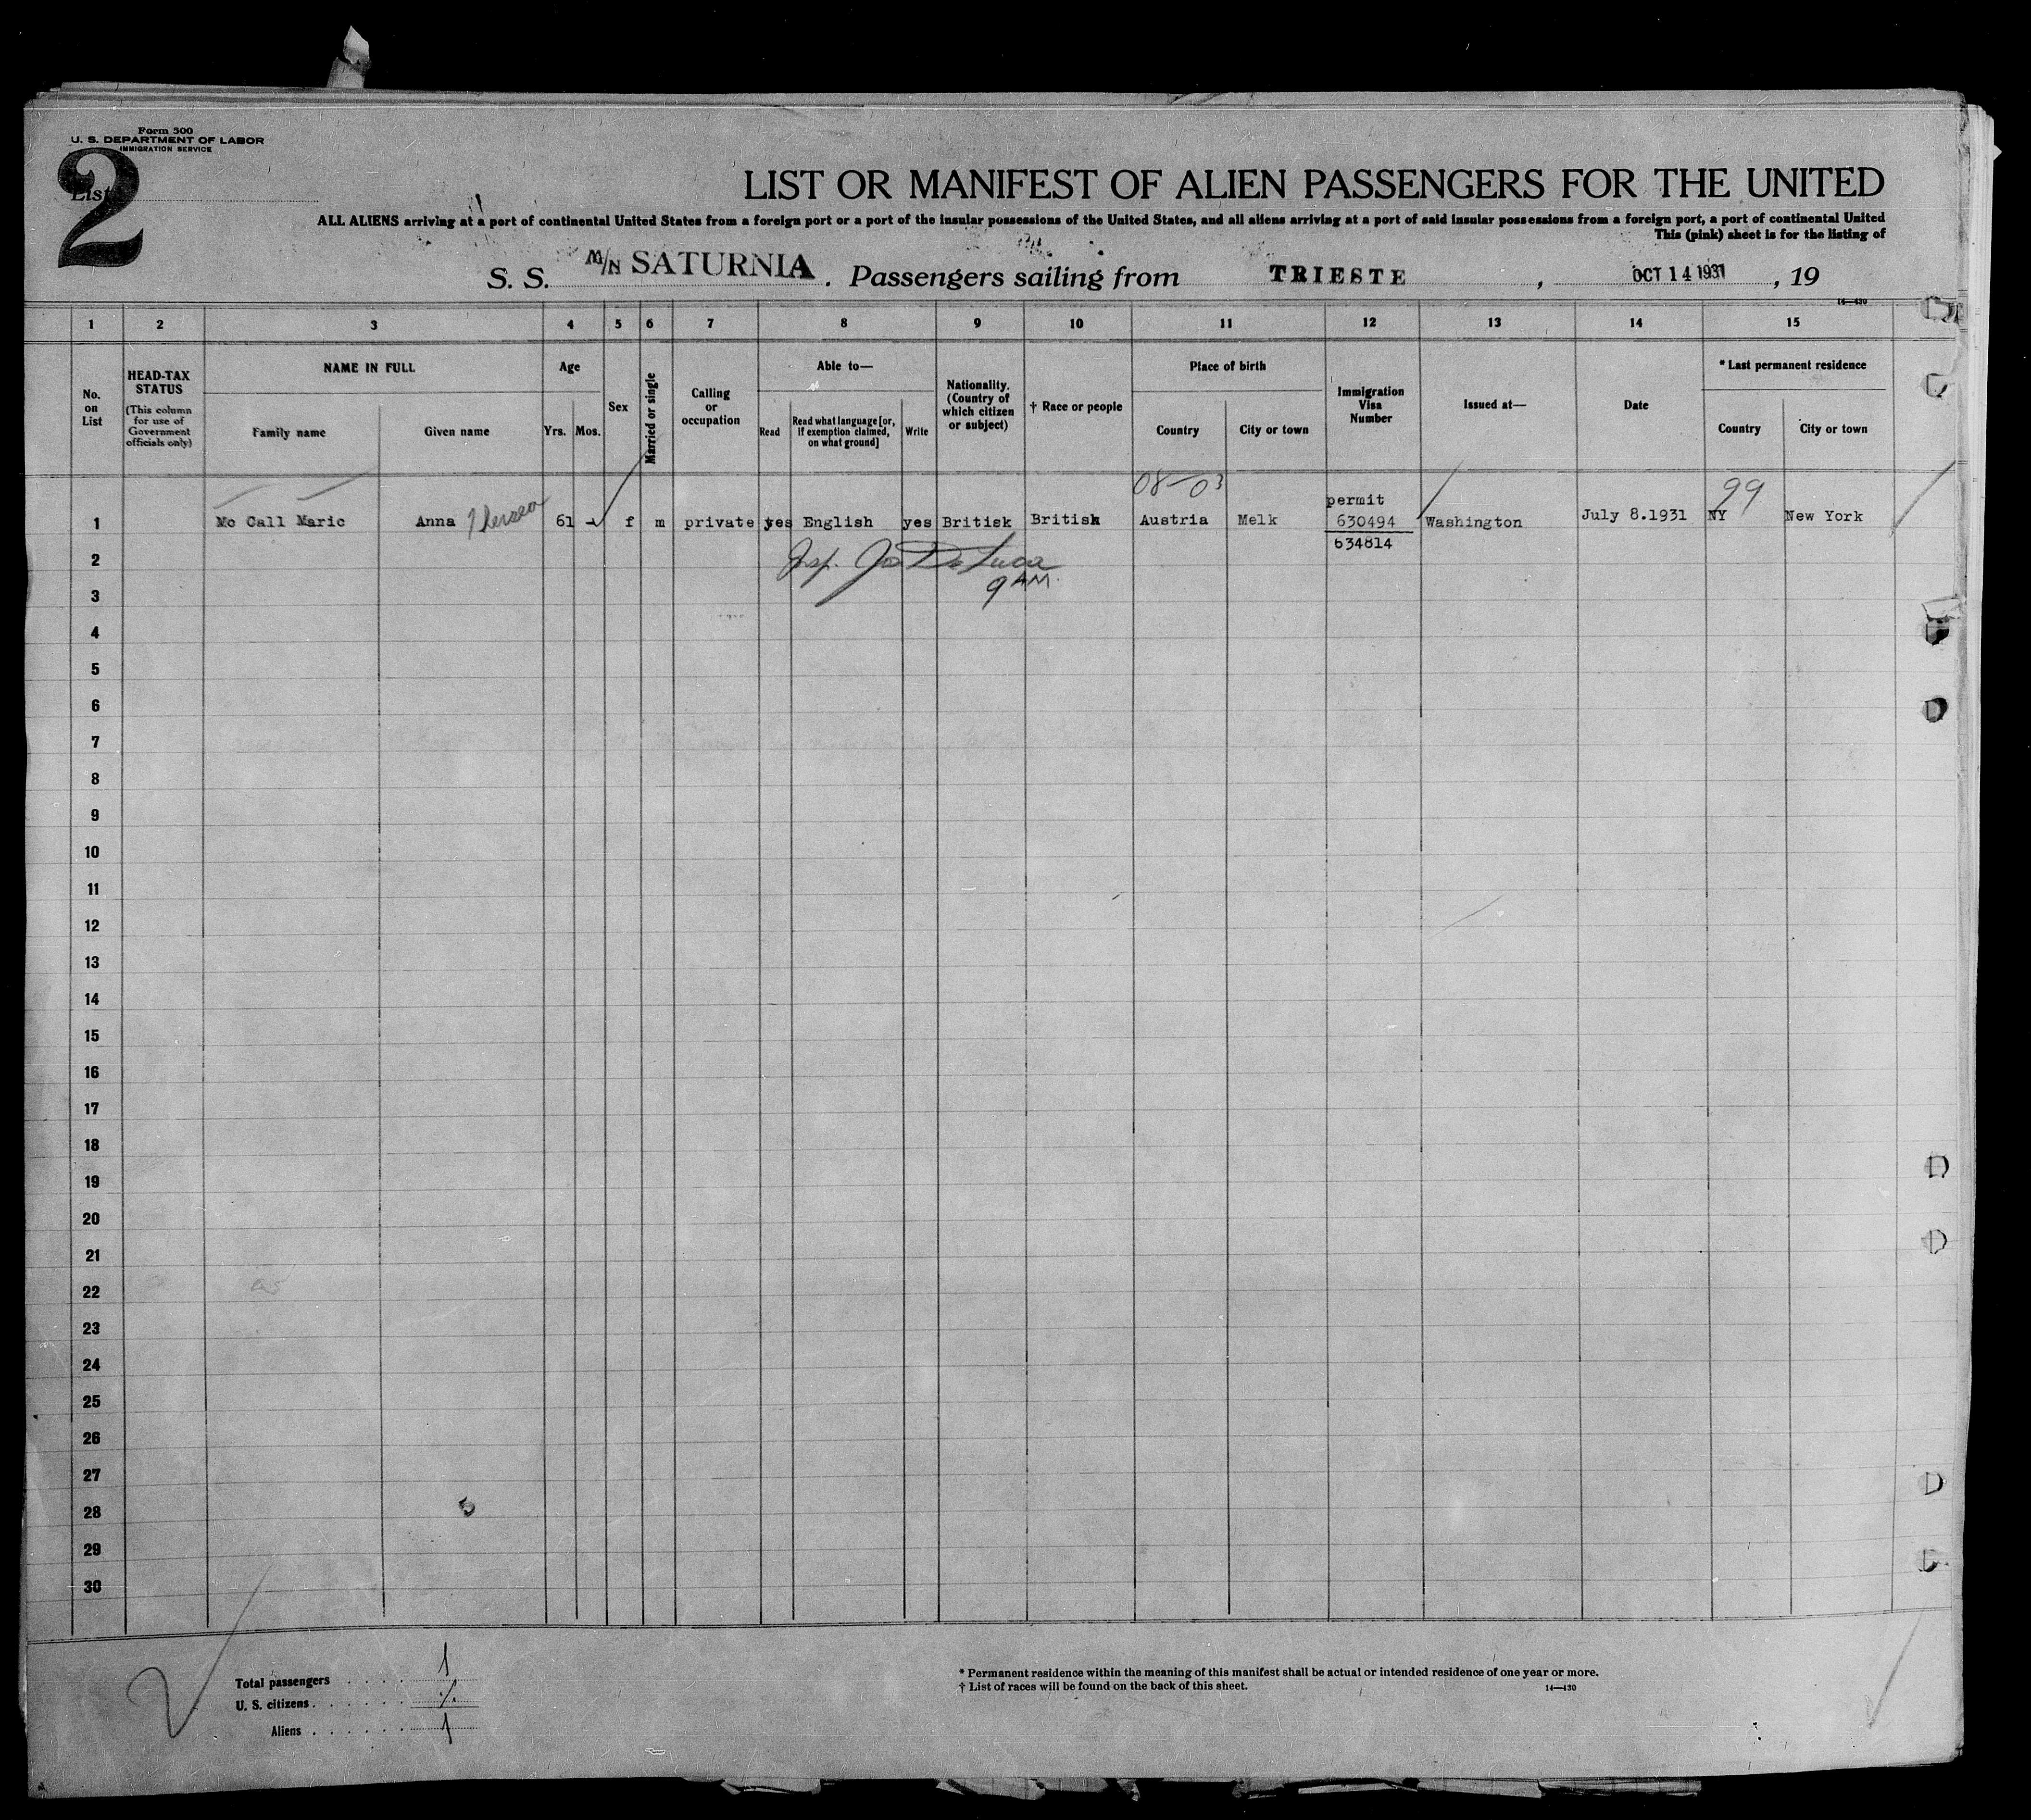 Form 500
U. S. DEPARTMENT OF LABOR
IMMIGRATION SERVICE
List 2
LIST OR MANIFEST OF ALIEN PASSENGERS FOR THE UNITED
ALL ALIENS arriving at a port of continental United States from a foreign port or a port of the insular possessions of the United States, and all aliens arriving at a port of said insular possessions from a foreign port, a port of continental United
This (pink) sheet is for the listing of
S. S. M/N SATURNIA. Passengers sailing from TRIESTE, OCT 14 1931, 19
14—430
1 2 3 4 5 6 7 8 9 10 11 12 13 14 15
No. on List
HEAD-TAX STATUS (This column for use of Government officials only)
NAME IN FULL
Family name
Given name
Age
Yrs.
Mos.
Sex
Married or single
Calling or occupation
Able to—
Read
Read what language [or, if exemption claimed, on what ground]
Write
Nationality. (Country of which citizen or subject)
† Race or people
Place of birth
Country
City or town
Immigration Visa Number
Issued at—
Date
* Last permanent residence
Country
City or town
08-03
99
permit
1 Mc Call Marie Anna Theresa 61 - f m private yes English yes British British Austria Melk 630494 Washington July 8.1931 NY New York
634814
2 Insp. Jo De Luca
9 AM.
3
4
5
6
7
8
9
10
11
12
13
14
15
16
17
18
19
20
21
22
23
24
25
26
27
28
29
30
Total passengers . . . . 1
U. S. citizens . . . . . . ./.
Aliens . . . . . . 1
* Permanent residence within the meaning of this manifest shall be actual or intended residence of one year or more.
† List of races will be found on the back of this sheet.
14—430